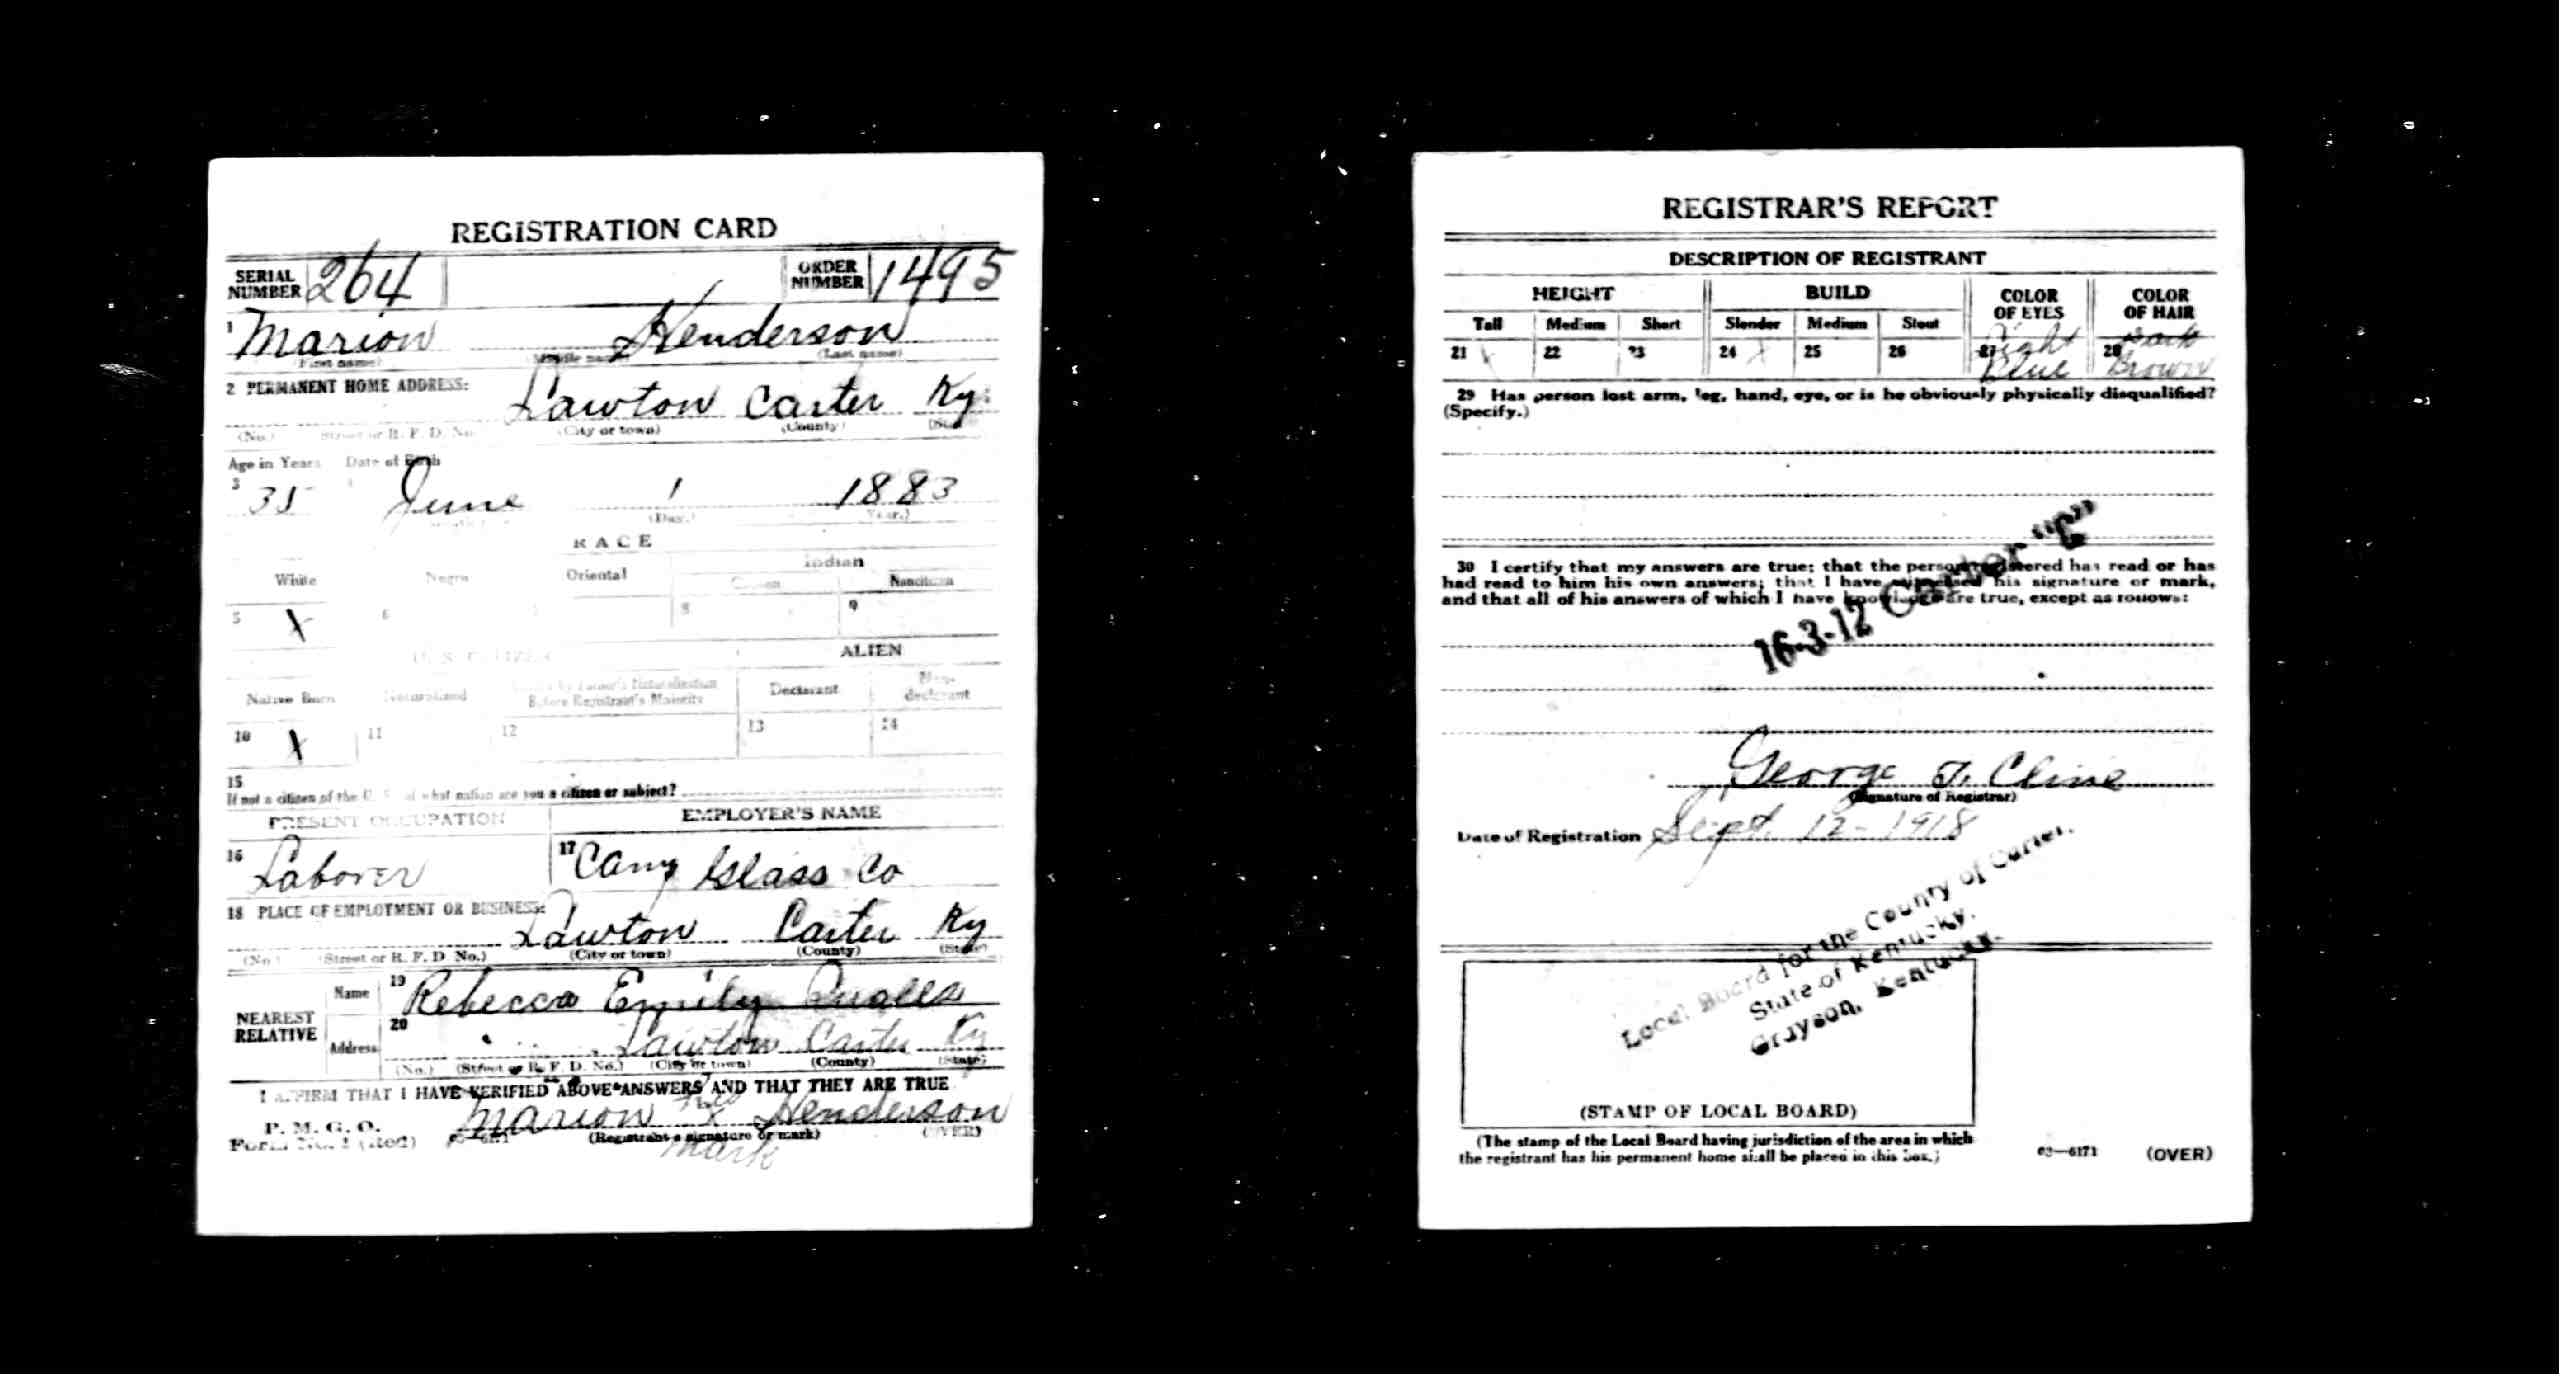 REGISTRATION CARD
SERIAL NUMBER 264 ORDER NUMBER 1495
1 Marion Henderson
(First name) (Middle name) (Last name)
2 PERMANENT HOME ADDRESS:
Lawton Carter Ky.
(No.) Street or R. F. D. No. (City or town) (County) (State)
Age in Years Date of Birth
3 35 June 1 1883
(Day.) (Year.)
RACE
White Negro Oriental Indian
Citizen Noncitizen
5 X 6 8 9
U. S. CITIZEN ALIEN
Native Born Naturalized Citizen by Father's Naturalization Before Registrant's Majority Declarant Non-declarant
10 X 11 12 13 14
15
If not a citizen of the U. S., of what nation are you a citizen or subject?
PRESENT OCCUPATION EMPLOYER'S NAME
16 Laborer 17 Glass Co
18 PLACE OF EMPLOYMENT OR BUSINESS:
Lawton Carter Ky
(No.) (Street or R. F. D. No.) (City or town) (County) (State)
NEAREST RELATIVE
Name 19 Rebecca Emily Qualls
Address 20 Lawton Carter Ky
(No.) (Street or R. F. D. No.) (City or town) (County) (State)
I AFFIRM THAT I HAVE VERIFIED ABOVE ANSWERS AND THAT THEY ARE TRUE
P. M. G. O.
Form No. 1 (Red) 03—6171 Marion his X Henderson
(Registrant's signature or mark) (OVER)
mark
REGISTRAR'S REPORT
DESCRIPTION OF REGISTRANT
HEIGHT BUILD COLOR OF EYES COLOR OF HAIR
Tall Medium Short Slender Medium Stout
21 X 22 23 24 X 25 26 27 Light Blue 28 Dark Brown
29 Has person lost arm, leg, hand, eye, or is he obviously physically disqualified?
(Specify.)
30 I certify that my answers are true; that the person registered has read or has
had read to him his own answers; that I have witnessed his signature or mark,
and that all of his answers of which I have knowledge are true, except as follows:
16-3-12 Carter "C"
George T. Cline
(Signature of Registrar)
Date of Registration Sept. 12-1918
Local Board for the County of Carter.
State of Kentucky.
Grayson, Kentucky.
(STAMP OF LOCAL BOARD)
(The stamp of the Local Board having jurisdiction of the area in which
the registrant has his permanent home shall be placed in this box.)
03—6171 (OVER)